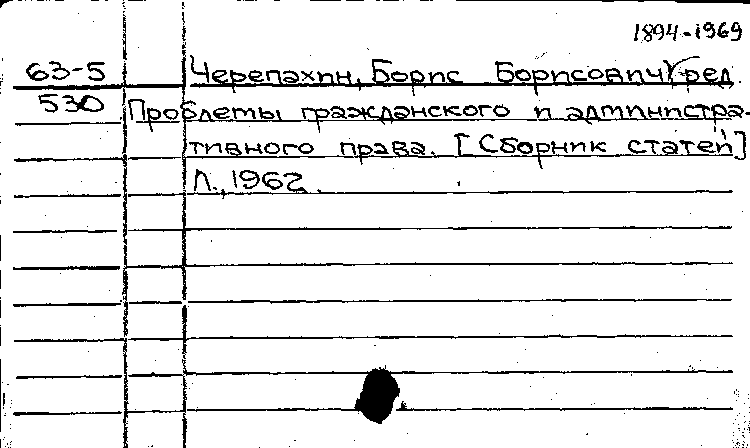 1894-1969
63-5 Черепахин, Борис Борисович, ред.
530 Проблемы гражданского и администра-
тивного права. [Сборник статей]
Л., 1962.